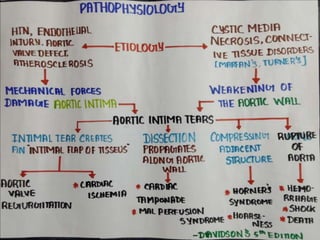 PATHOPHYSIOLOGY
HTN, ENDOTHELIAL
INJURY, AORTIC
VALVE DEFECT
ATHEROSCLEROSIS
ETIOLOGY
CYSTIC MEDIA
NECROSIS, CONNECT-
IVE TISSUE DISORDERS
[MARFAN'S, TURNER'S]
MECHANICAL FORCES
DAMAGE AORTIC INTIMA
WEAKENING OF
THE AORTIC WALL
AORTIC INTIMA TEARS
INTIMAL TEAR CREATES
AN "INTIMAL FLAP OF TISSEUS"
DISSECTION
PROPAGATES
ALONG AORTIC
WALL
COMPRESSING
ADJACENT
STRUCTURE
RUPTURE
OF
AORTA
AORTIC
VALVE
REGURGITATION
* CARDIAC
ISCHEMIA
* CARDIAC
TAMPONADE
* MAL PERFUSION
SYNDROME
* HORNER'S
SYNDROME
* HOARSE-
NESS
* HEMO-
RRHAGE
* SHOCK
* DEATH
-DAVIDSON'S 5th EDITION